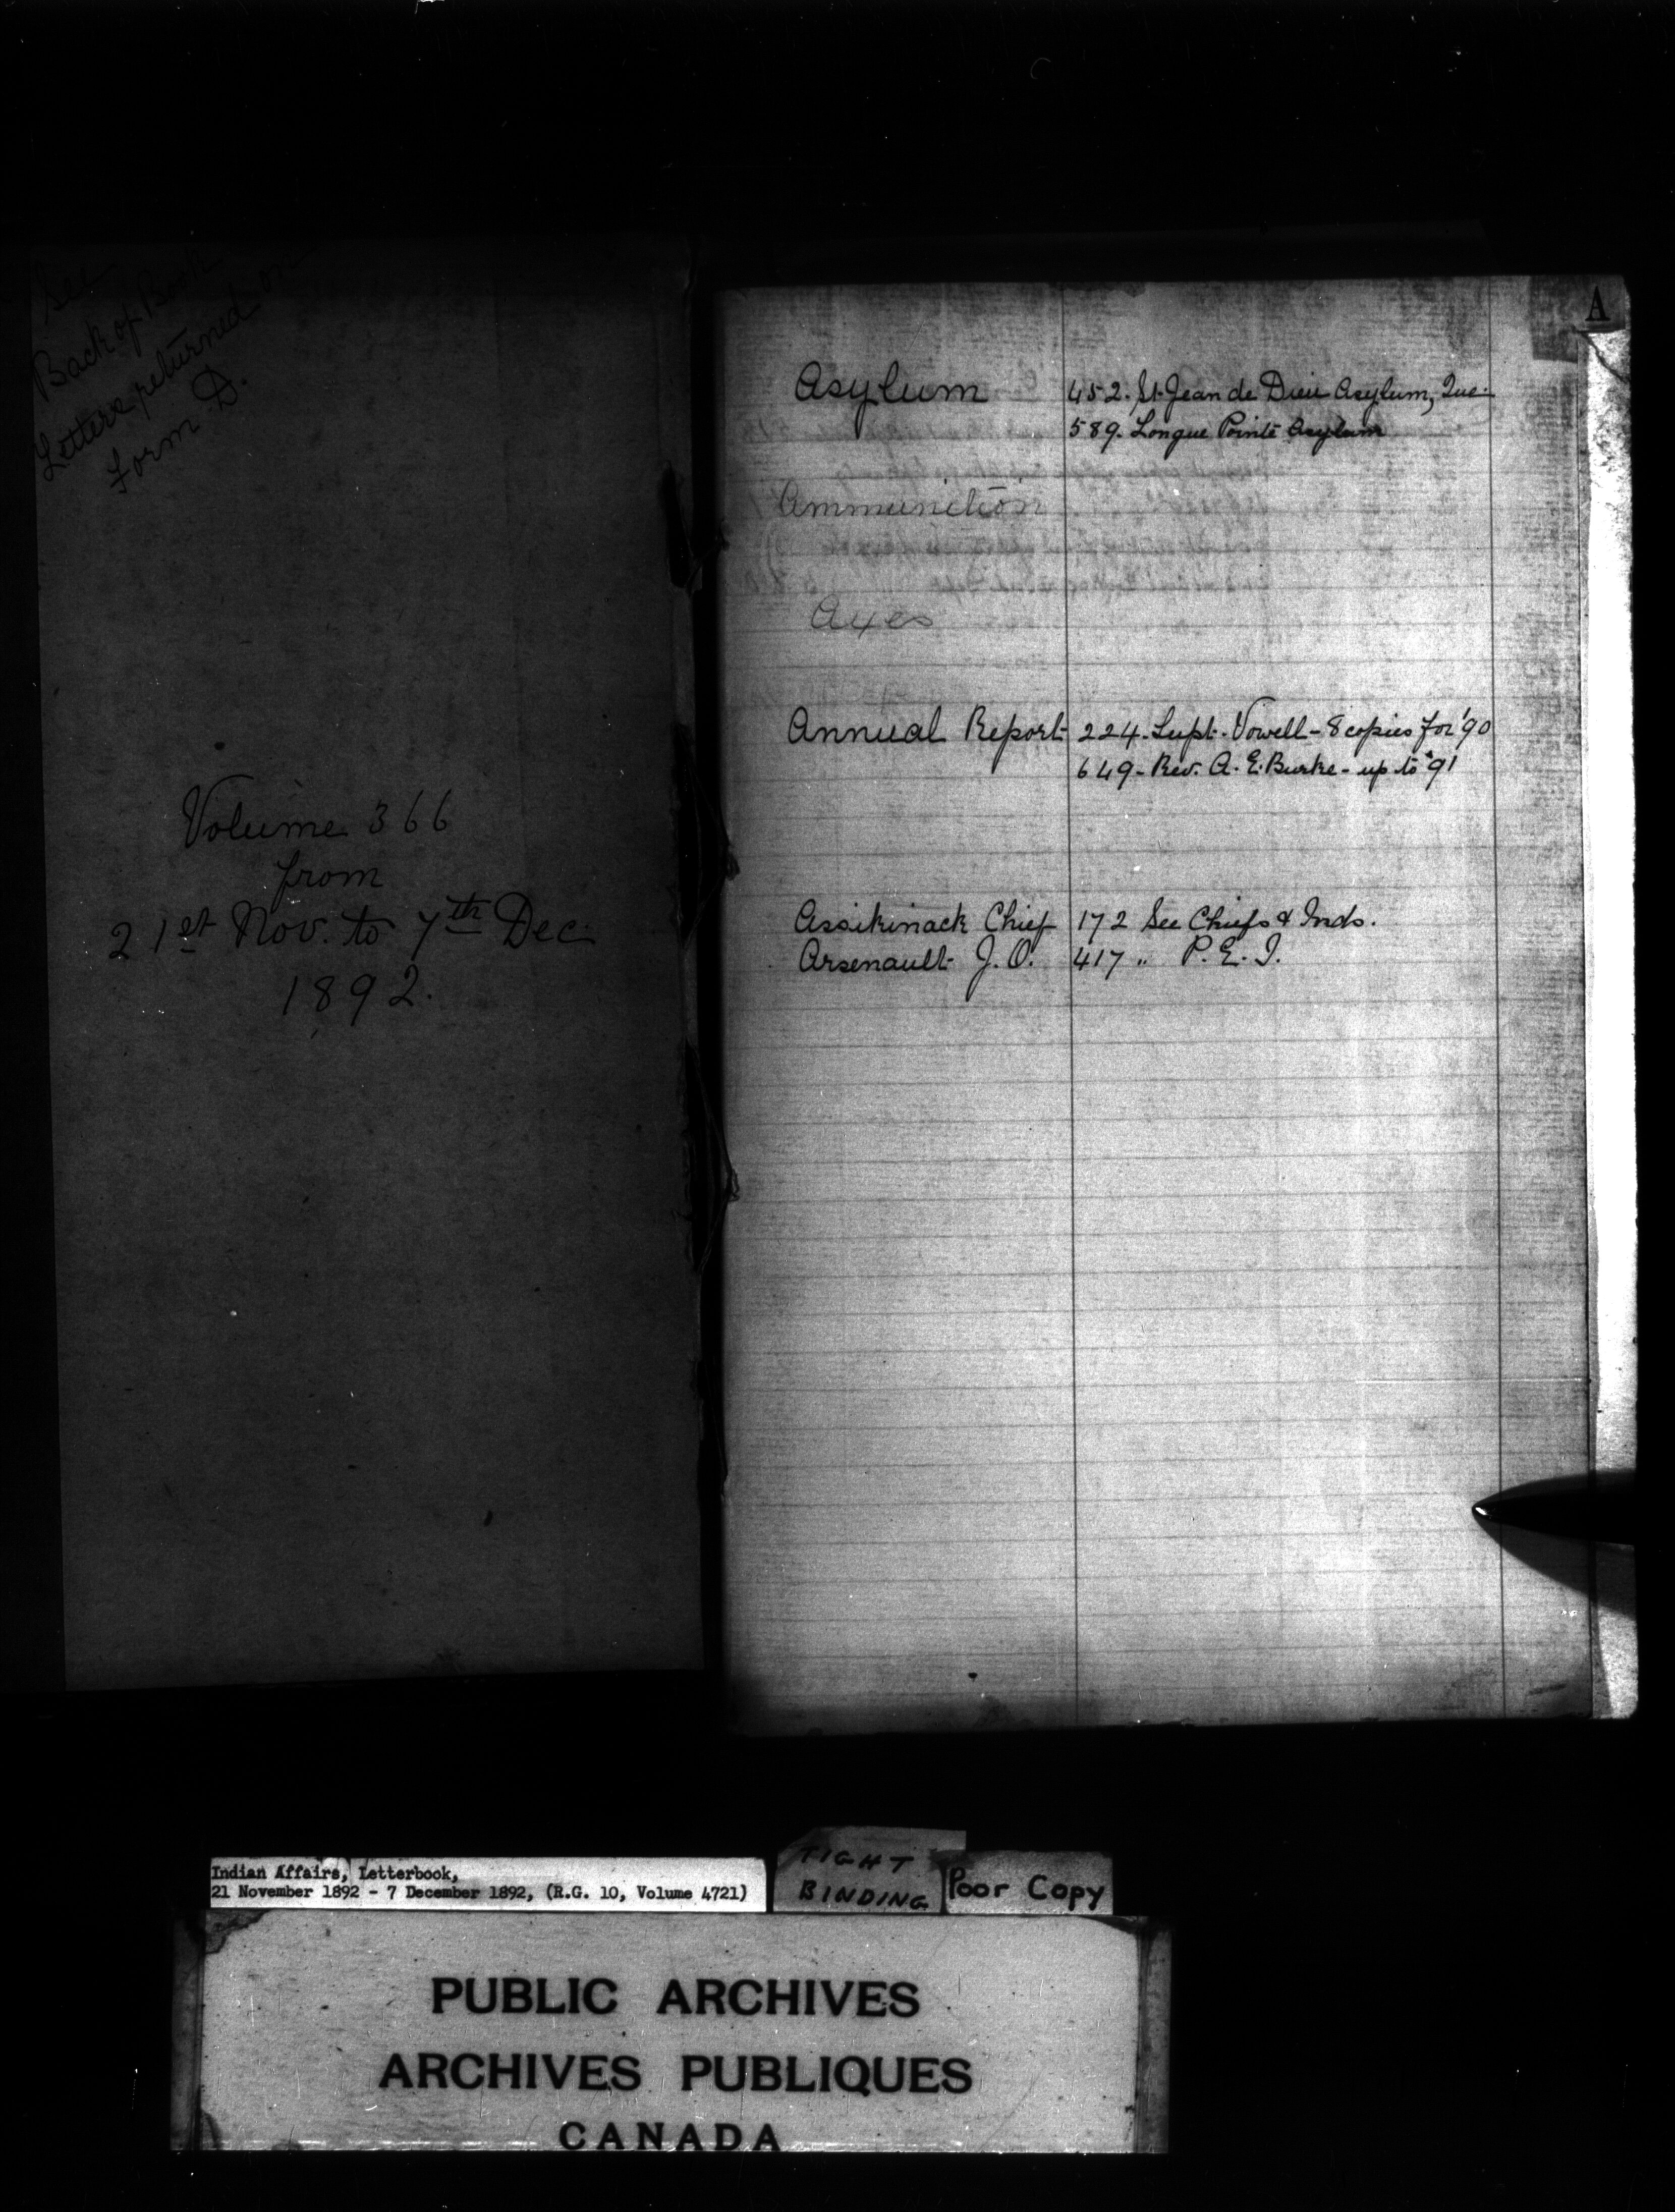 See
Back of Book
Letters returned on
Form D.
Volume 366
from
21st Nov. to 7th Dec.
1892.
A
Asylum 452. St. Jean de Dieu Asylum, Que.
589. Longue Pointe Asylum
Ammunition
Axes
Annual Report 224. Supt. Vowell - 8 copies for '90
649 - Rev. A. E. Burke - up to '91
Assikinack Chief 172 See Chiefs & Inds.
Arsenault J. O. 417 " P. E. I.
Indian Affairs, Letterbook,
21 November 1892 - 7 December 1892, (R.G. 10, Volume 4721)
TIGHT
BINDING
Poor Copy
PUBLIC ARCHIVES
ARCHIVES PUBLIQUES
CANADA